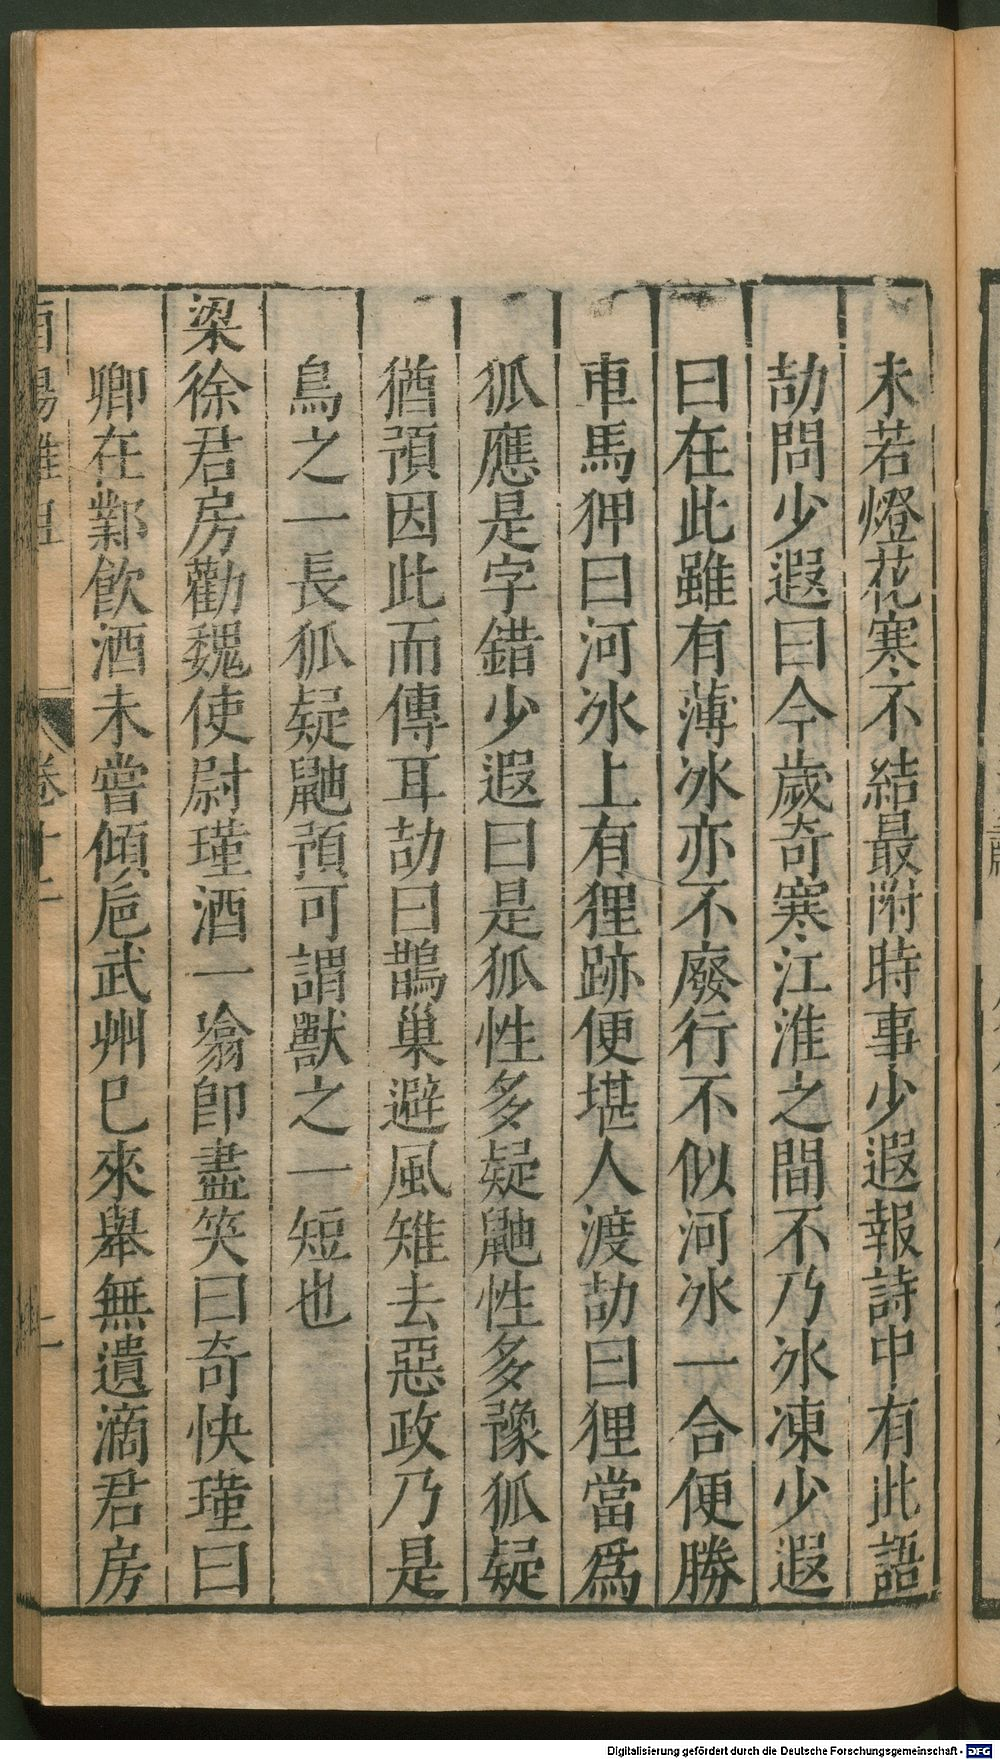 未若燈花寒不結最附時事少遐報詩中有此語
劼問少遐曰今歲奇寒江淮之間不乃冰凍少遐
曰在此雖有薄冰亦不廢行不似河冰一合便勝
車馬狎曰河冰上有狸跡便堪人渡劼曰狸當爲
狐應是字錯少遐曰是狐性多疑鼬性多豫狐疑
猶預因此而傳耳劼曰鵲巢避風雉去惡政乃是
鳥之一長狐疑鼬預可謂獸之一短也
梁徐君房勸魏使尉瑾酒一噏即盡笑曰奇快瑾曰
卿在鄴飲酒未嘗傾巵武州已來舉無遺滴君房
酉陽雜俎 卷十二
Digitalisierung gefördert durch die Deutsche Forschungsgemeinschaft - DFG